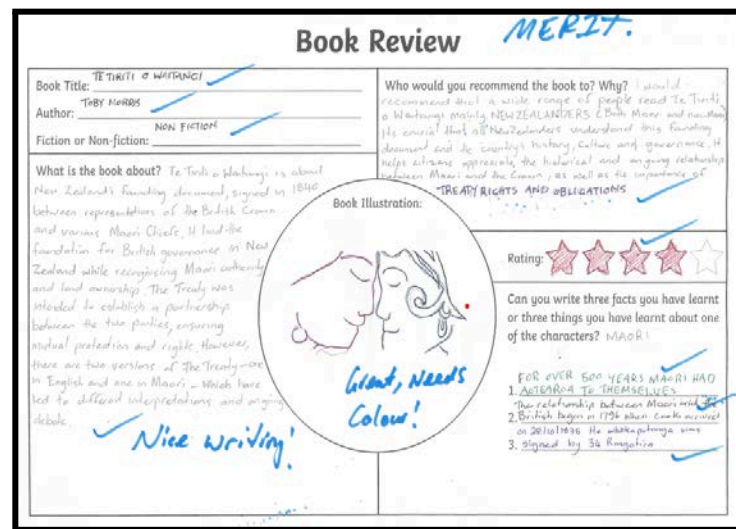 Book Review
MERIT.
Book Title: TE TIRITI O WAITANGI
Author: TOBY MORRIS
Fiction or Non-fiction: NON FICTION
What is the book about? Te Tiriti o Waitangi is about
New Zealand's founding document, signed in 1840
between representatives of the British Crown
and various Maori Chiefs. It laid the
foundation for British governance in New
Zealand while recognising Maori authority
and land ownership. The Treaty was
intended to establish a partnership
between the two parties, ensuring
mutual protection and rights. However,
there are two versions of The Treaty - one
in English and one in Maori - which have
led to different interpretations and ongoing
debate.
Nice writing!
Book Illustration:
Great, Needs
Colour!
Who would you recommend the book to? Why? I would
recommend that a wide range of people read Te Tiriti
o Waitangi mainly NEW ZEALANDERS (Both Maori and
Its crucial that all New Zealanders understand this founding
document and the country's history, culture and governance. It
helps citizens appreciate the historical and ongoing relationship
between Maori and the Crown, as well as the importance of
TREATY RIGHTS AND OBLIGATIONS
Rating:
Can you write three facts you have learnt
or three things you have learnt about one
of the characters? MAORI
FOR OVER 500 YEARS MAORI HAD
1. AOTEAROA TO THEMSELVES
The relationship between Maori and the
2. British began in when Cook arrived
on 28/10/1835 He whakaputanga was
3. signed by 34 Rangatira